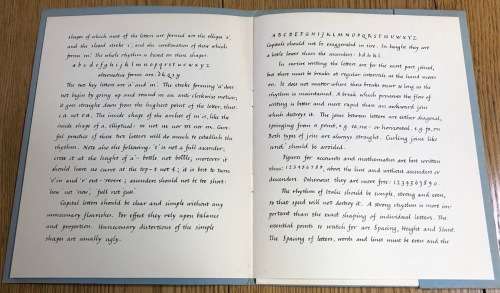 shapes of which most of the letters are formed are the ellipse 'o'
and the sloped stroke 'l', and the combination of these which
forms 'n'. The whole rhythm is based on these shapes.
a b c d e f g h i j k l m n o p q r s t u v w x y z
alternative forms are
The two key letters are 'a' and 'n'. The stroke forming 'a' does
not begin by going up and round in an anti-clockwise motion;
it goes straight down from the highest point of the letter, thus
The inside shape of the arches of 'n' is, like the
inside shape of a, elliptical: n not
practice of these two letters will do much to establish the
rhythm. Note also the following: 't' is not a full ascender;
cross it at the height of 'o' - bottle not bottle, moreover it
should have no curve at the top - t not t; it is best to turn
'v' in and 'r' out - verve; ascenders should not be too short:
how not how, full not full.
Capital letters should be clear and simple without any
unnecessary flourishes. For effect they rely upon balance
and proportion. Unnecessary distortions of the simple
shape are usually ugly.
A B C D E F G H I J K L M N O P Q R S T U V W X Y Z
Capitals should not be exaggerated in size. In height they are
a little lower than the ascenders: b d h k l
In cursive writing the letters are for the most part joined,
but there must be breaks at regular intervals as the hand moves
on. It does not matter where these breaks occur so long as the
rhythm is maintained. A break which preserves the flow of
writing is better and more rapid than an awkward join
which destroys it. The joins between letters are either diagonal,
springing from a point, e.g. - or horizontal, e.g.
Both types of join are always straight. Curling joins like
and should be avoided.
Figures for accounts and mathematics are best written
thus: 1 2 3 4 5 6 7 8 9, above the line and without ascenders or
descenders. Otherwise they are more free: 1 2 3 4 5 6 7 8 9 0.
The rhythm of Italic should be simple, strong and even,
so that speed will not destroy it. A strong rhythm is more im-
portant than the exact shaping of individual letters. The
essential points to watch for are Spacing, Height and Slant.
The Spacing of letters, words and lines must be even and the